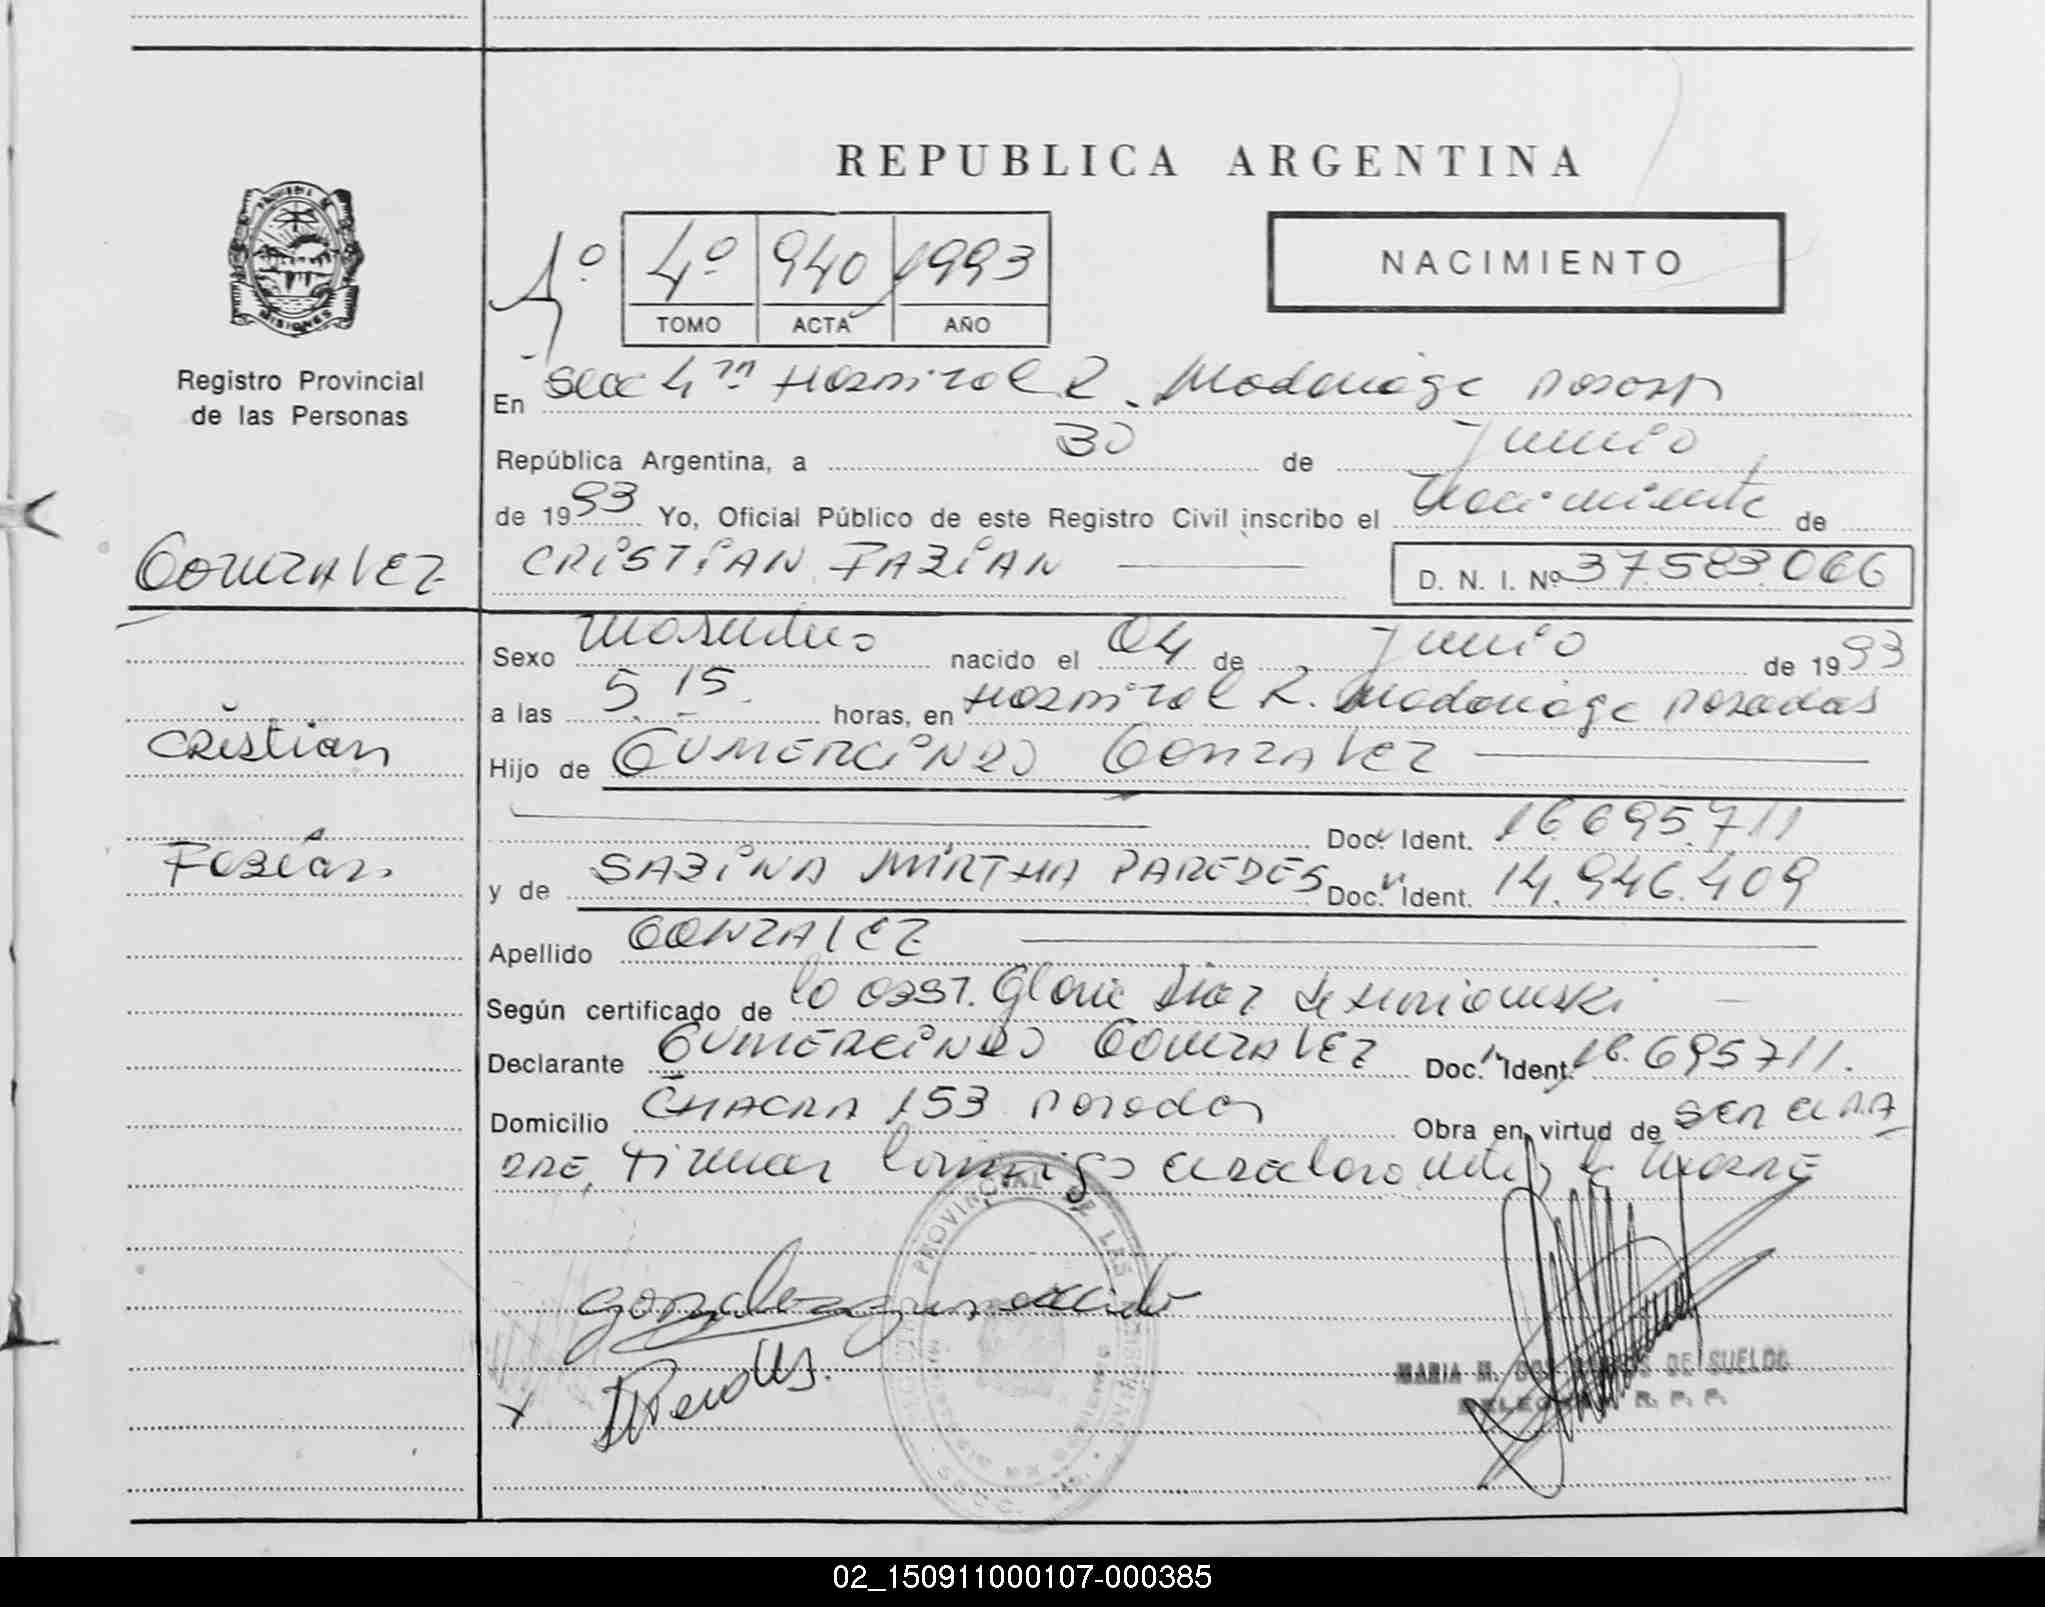 REPUBLICA ARGENTINA
1º 4º 940 1993
TOMO ACTA AÑO
NACIMIENTO
MISIONES
Registro Provincial
de las Personas
En Secc 4ta Hospital R. Madariaga Posadas
República Argentina, a 30 de Junio
de 1993 Yo, Oficial Público de este Registro Civil inscribo el Nacimiento de
GONZALEZ CRISTIAN FABIAN D. N. I. Nº 37.583.066
Sexo Masculino nacido el 04 de Junio de 1993
a las 5 15 horas, en Hospital R. Madariaga Posadas
Cristian
Hijo de GUMERCINDO GONZALEZ
Doc. Ident. 16.695.711
Fabián
y de SABINA MIRTHA PAREDES Doc. Ident. 14.946.409
Apellido GONZALEZ
Según certificado de la obst. Gloria Diaz de
Declarante GUMERCINDO GONZALEZ Doc. Ident. 16.695711.
Domicilio CHACRA 153 Posadas Obra en virtud de SER el PA
DRE, Firman conmigo declarante y la Madre
gonzalez gumercindo
PROVINCIAL DE LAS
MARIA M. DE SUELDO
DELEGADA R. P. P.
02_150911000107-000385